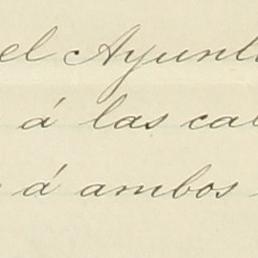 el Ayunt
á las cal
á ambos